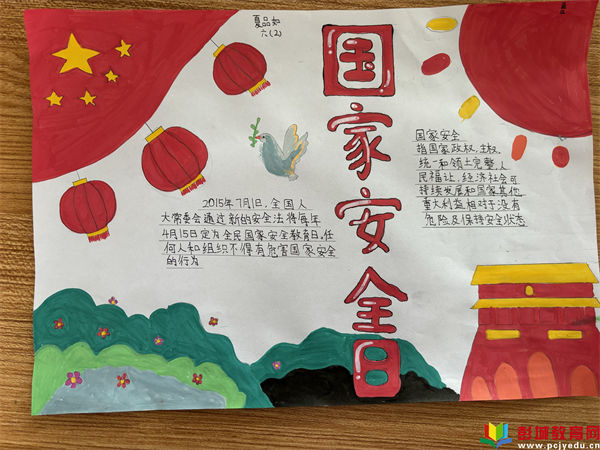 夏品如
六(2)
国家安全日
2015年7月1日,全国人
大常委会通过新的安全法将每年
4月15日定为全民国家安全教育日,任
何人和组织不得有危害国家安全
的行为
国家安全
指国家政权,主权,
统一和领土完整,人
民福让,经济社会可
持续发展和国家其他
重大利益相对于没有
危险及保持安全状态
彭城教育网
www.pcjyedu.cn